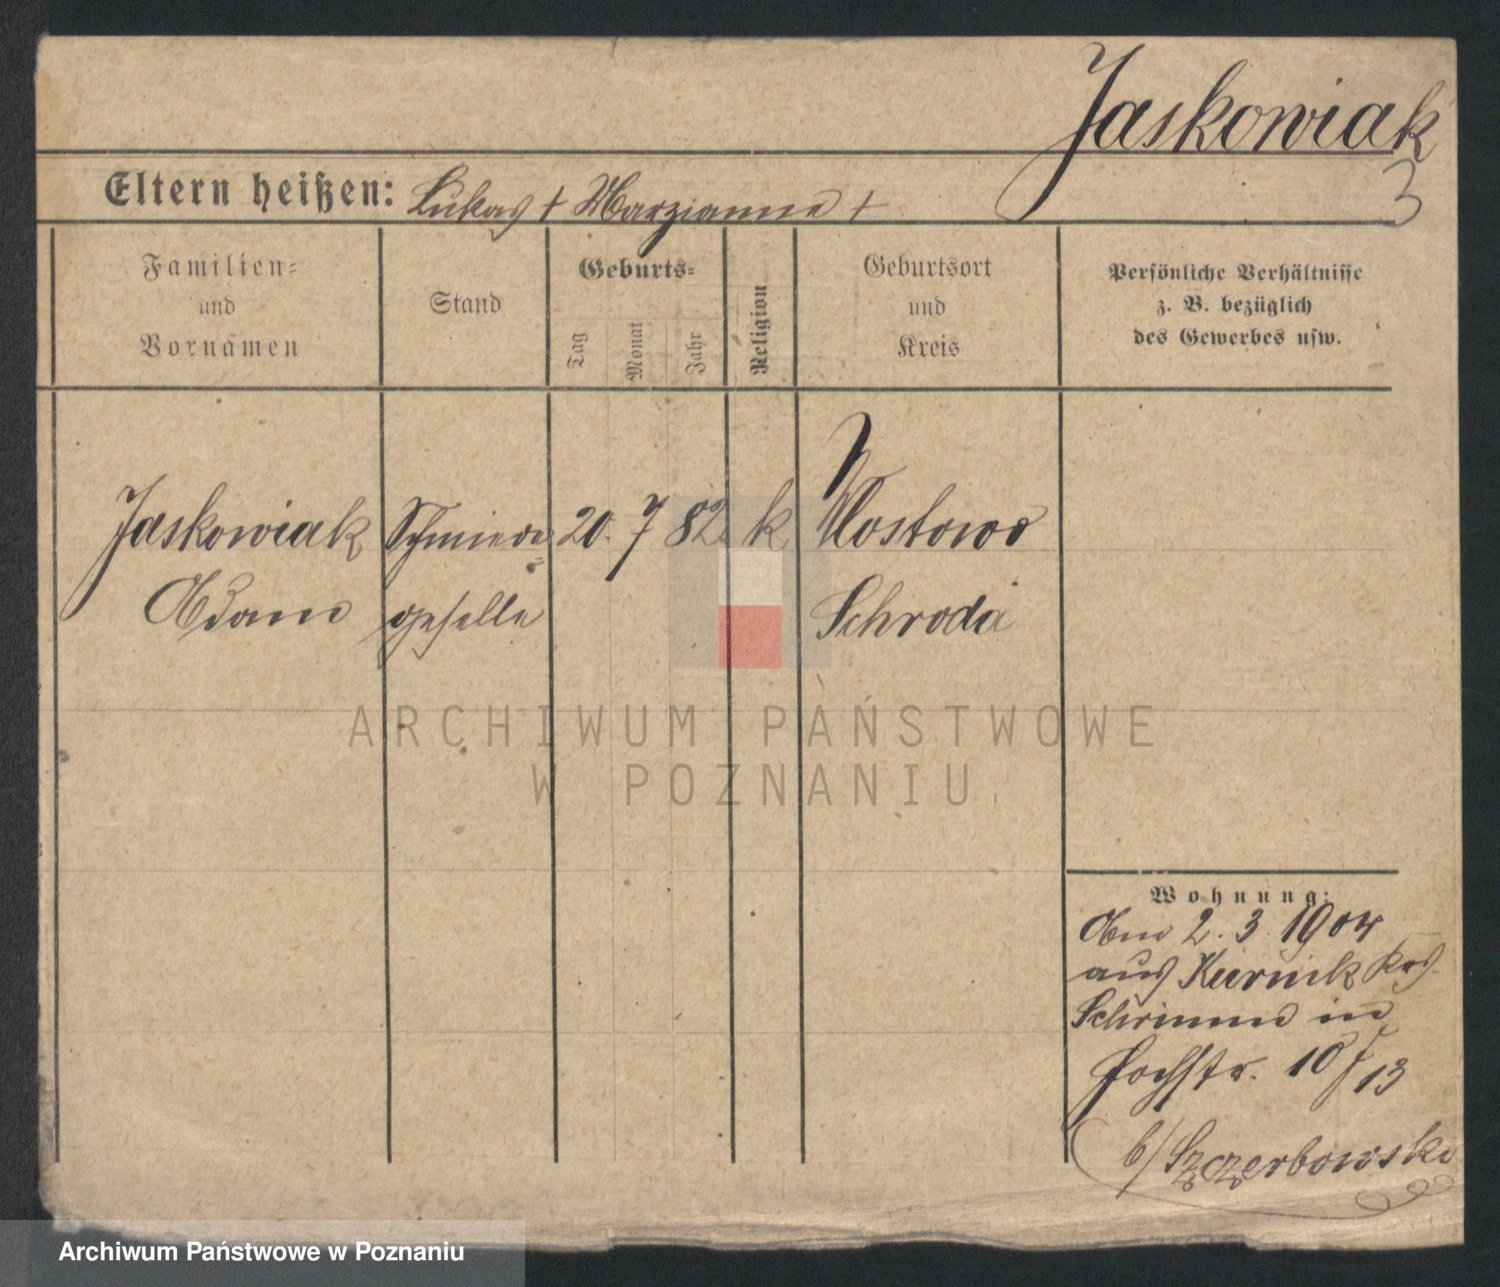 Jaskowiak
3
Eltern heißen: Lukas + Marzianna +
Familien-
und
Vornamen
Stand
Geburts-
Tag
Monat
Jahr
Religion
Geburtsort
und
Kreis
Persönliche Verhältnisse
z. B. bezüglich
des Gewerbes usw.
Jaskowiak Schmiede= 20. 7 82 k Mostowo
Adam geselle Schroda
ARCHIWUM PAŃSTWOWE
W POZNANIU
Wohnung:
Am 2. 3. 1904
aus Kurnik Krs.
Schrimm in
Hochstr. 10/13
b/ Szczerbowski
Archiwum Państwowe w Poznaniu